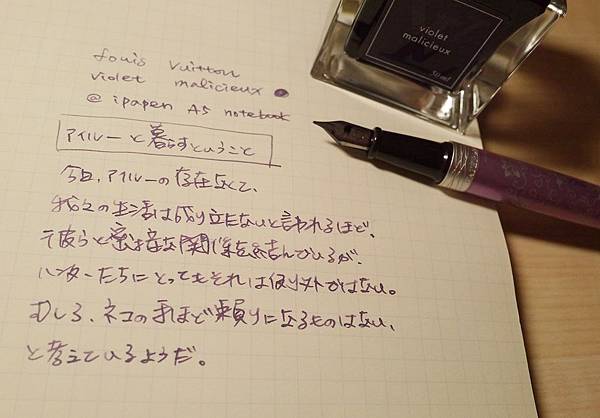 violet
malicieux
50 ml
Louis Vuitton
violet malicieux
@ ipapen A5 notebook
アイルーと暮らすということ
今日、アイルーの存在なくて、
我々の生活は成り立たないと言われるほど、
彼らと密接な関係を結んでいるが、
ハンターたちにとってもそれは例外ではない。
むしろ、ネコの手ほど頼りになるものはない、
と考えているようだ。